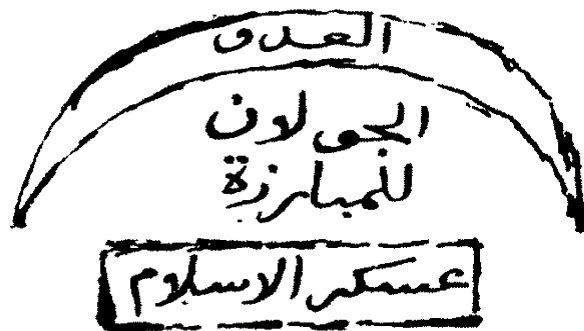 العدو
الجولان
للمبارزة
عسكر الاسلام